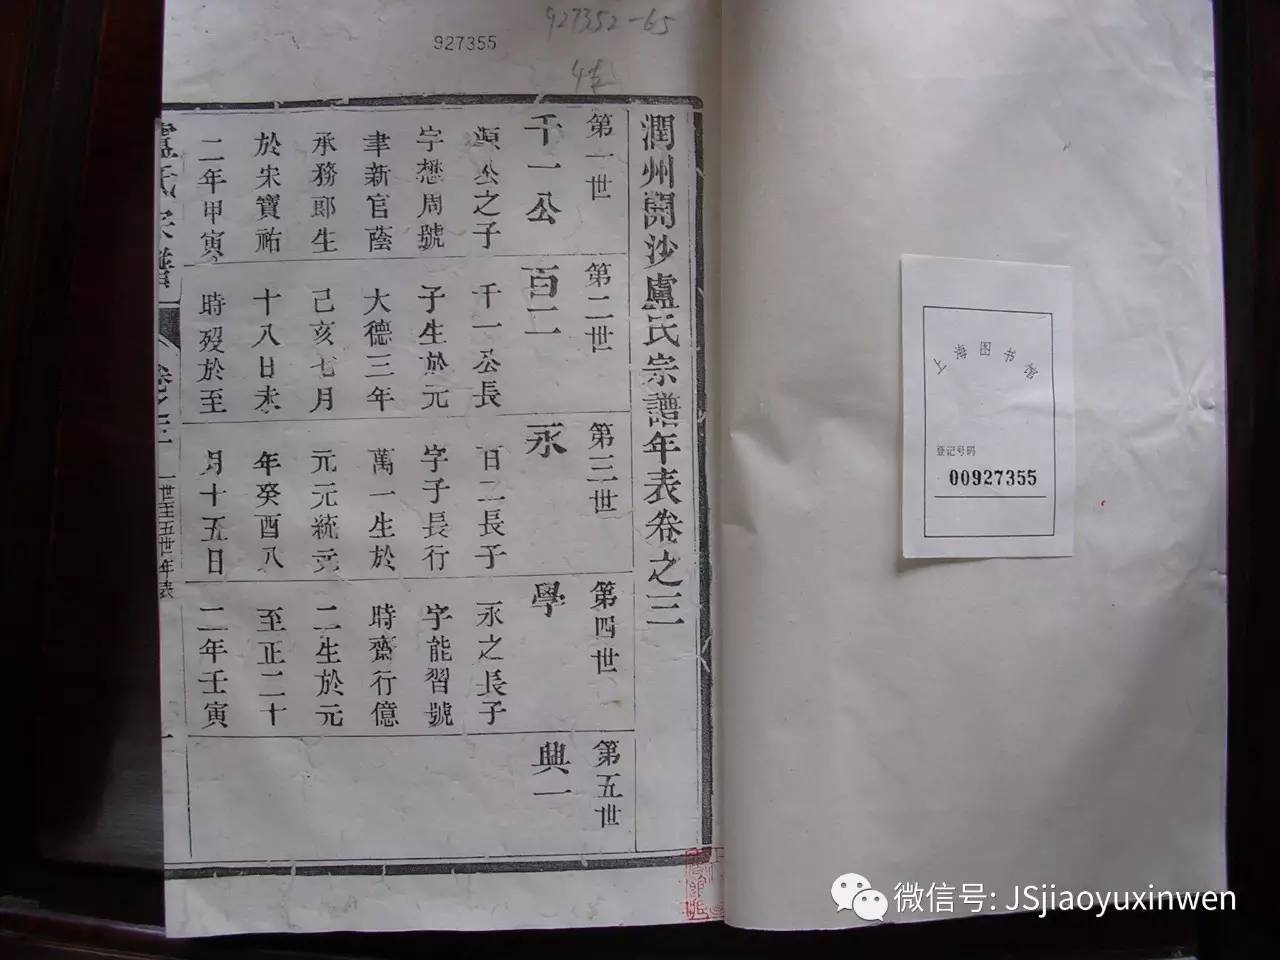 927352-65
927355
潤州開沙盧氏宗譜年表卷之三
第一世
千一公
源公之子
字懋周號
聿新官蔭
承務郎生
於宋寶祐
二年甲寅
第二世
百二
千一公長
子生於元
大德三年
己亥七月
十八日未
時歿於至
第三世
永
百二長子
字子長行
萬一生於
元元統元
年癸酉八
月十五日
第四世
學
永之長子
字能習號
時齋行億
二生於元
至正二十
二年壬寅
第五世
典一
盧氏宗譜
卷之三
一世至五世年表
一
上海图书馆
登记号码
00927355
微信号: JSjiaoyuxinwen